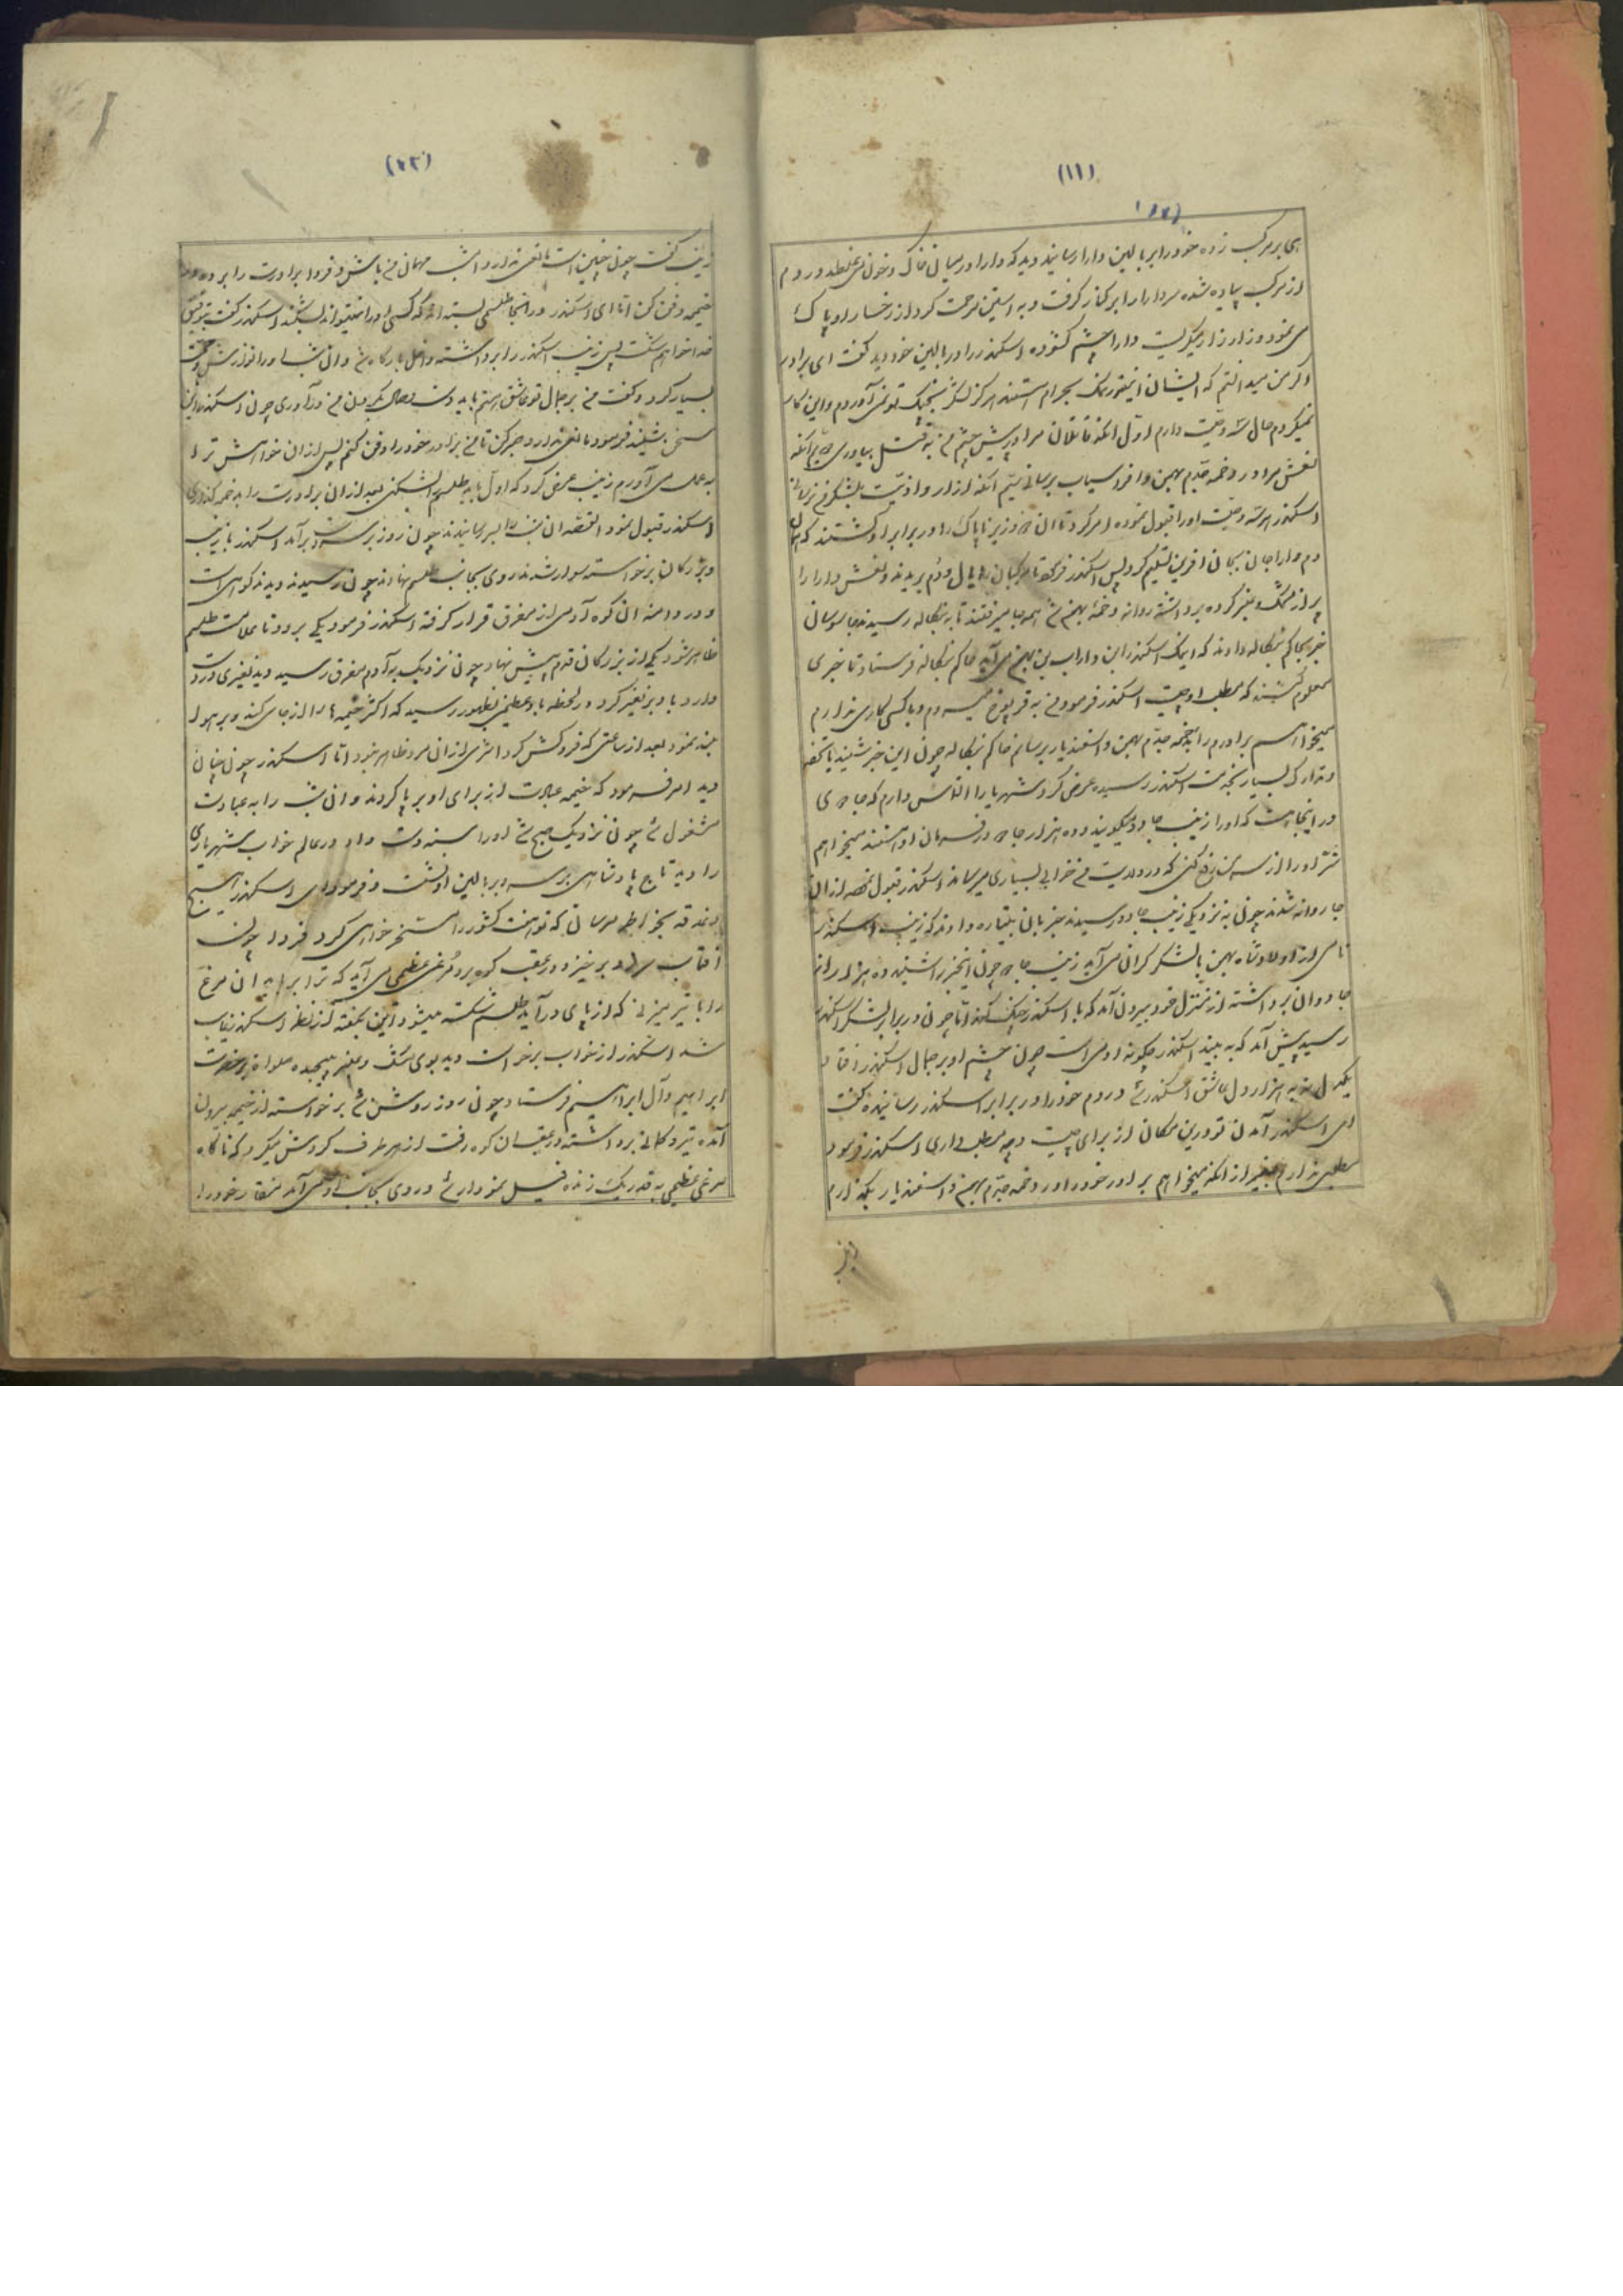 (۱۱)
هی بر مرکب زده خود را بر بالین دارا رسانید دید که دارا در میان خاک و خون می‌غلطد در دم
از مرکب پیاده شده سر دارا را بر کنار گرفت و به استین مرحمت گرد از رخسار او پاک
می‌نمود و زار زار میگریست دارا چشم کشوده اسکندر را در بالین خود دید گفت ای برادر
اگر من میدانستم که ایشان اینقدر نمک بحرام هستند هرگز لشکر بجنگ تو نمی‌آوردم و این کار
نمیکردم حال سه وصیت دارم اول انکه قاتلان مرا در پیش چشم من به قتل بیاوری دویم انکه
نعش مرا در دخمه جدم بهمن و افراسیاب برسانی سیم انکه ازار و اذیت بلشکر من نرسانی
اسکندر هر سه وصیت او را قبول نموده امر کرد تا ان دو وزیر ناپاک را در برابر او کشتند که
دم دارا جان بجان افرین تسلیم کرد پس اسکندر فرمود تا مرکبان را یال و دم بریدند و نعش دارا را
پر از مشک و عنبر کرده برداشته روانه دخمهٔ بهمن شد همه جا میرفتند تا به بنگاله رسیدند جاسوسان
خبر بحاکم بنگاله دادند که اینک اسکندر ابن داراب بن بهمن می‌آید حاکم بنگاله فرستاد تا خبری
معلوم کنند که مطلب او چیست اسکندر فرمود من به میروم و با کسی کاری ندارم
میخواهم برادرم را بدخمه جدم بهمن و اسفندیار برسانم حاکم بنگاله چون این خبر شنید با تحفه
و تدارک بسیار بخدمت اسکندر رسیده عرض کرد شهریارا التماس دارم که جادوی
در اینجا هست که او را زینب جادو میگویند و ده هزار جادو در فرمان او هستند میخواهم
شر او را از سر من رفع کنی که در ولایت من خرابی بسیاری میرساند اسکندر قبول نموده از ان
جا روانه شدند چون به نزدیکی زینب جادو رسیدند خبر بان پتیاره دادند که زینب اسکندر
نامی از اولاد شاه بهمن با لشکر گران می‌آید زینب جادو چون این خبر را شنید ده هزار از
جادوان برداشته از منزل خود بیرون آمد که با اسکندر جنگ کند اما چون در برابر لشکر اسکندر
رسید پیش آمد که به بیند اسکندر چگونه ادمی است چون چشم او بر جمال اسکندر افتاد
یکدل نه به هزار دل عاشق اسکندر شد در دم خود را در برابر اسکندر رسانیده گفت
ای اسکندر آمدن تو درین مکان از برای چیست و چه مطلب داری اسکندر فرمود
مطلبی ندارم بغیر از انکه میخواهم برادر خود را در دخمه جدم بهمن و اسفندیار بگذارم
(۱۲)
زینب گفت چون چنین است مانعی ندارد امشب مهمان من باش و فردا برادرت را برده در
دخمه دفن کن اما ای اسکندر در انجا طلسمی بسته اند که کسی او را نمیتواند بشکند اسکندر گفت بتوفیق
خدا خواهم شکست پس زینب اسکندر را برداشته داخل بارگاه شد و ان شب او را نوازش
بسیار کرد و گفت من بر جمال تو عاشق هستم باید دست وصال بگردن من درآوری چون اسکندر این
سخن بشنید فرمود مانعی ندارد صبر کن تا من برادر خود را دفن کنم پس از ان خواهش ترا
به عمل می‌آورم زینب عرض کرد که اول باید طلسم را بشکنی بعد از ان برادرت را بدخمه گذاری
اسکندر قبول نمود القصه ان شب را بسر رسانیدند چون روز بر سر دست برآمد اسکندر با زینب
و بزرگان برخواسته سوار شدند روی بجانب طلسم نهادند چون رسیدند دیدند کوهی است
و در دامنه ان کوه آدمی از مفرق قرار گرفته اسکندر فرمود یکی برود تا علامت طلسم
ظاهر شود یکی از بزرگان قدم پیش نهاد چون نزدیک به آدم مفرق رسید دید نفیری در دست
دارد باد بر نفیر کرد در لحظه باد عظیمی بظهور رسید که اکثر خیمه ها را از جای کند و بر هوا
بلند نمود بعد از ساعتی که فروکش کرد اثری از ان مرد ظاهر نبود اما اسکندر چون چنان
دید امر فرمود که خیمه عبادت از برای او برپا کردند و ان شب را به عبادت
مشغول شد چون نزدیک صبح شد او را دست داد در عالم خواب شهریاری
را دید تاج پادشاهی بر سر و بر بالین او نشست و فرمود ای اسکندر هیچ
دغدغه بخواطر مرسان که تو هفت کشور را مسخر خواهی کرد فردا چون
افتاب سر برمیزند در عقب کوه برو مرغی عظیمی می‌آید که ترا برباید ان مرغ
را با تیر میزنی که از پای درآید طلسم شکسته میشود این بگفته از نظر اسکندر غایب
شد اسکندر از خواب برخواست دید بوی مشک و عنبر پیچیده صلوات بر حضرت
ابراهیم و آل ابراهیم فرستاد چون روز روشن شد برخواسته از خیمه بیرون
آمده تیر و کمانی برداشته در عقب ان کوه رفت از هر طرف گردش میکرد که ناگاه
مرغی عظیمی به قدر یک زنده فیل نمودار شد و روی بجانب او می‌آمد منقار خود را